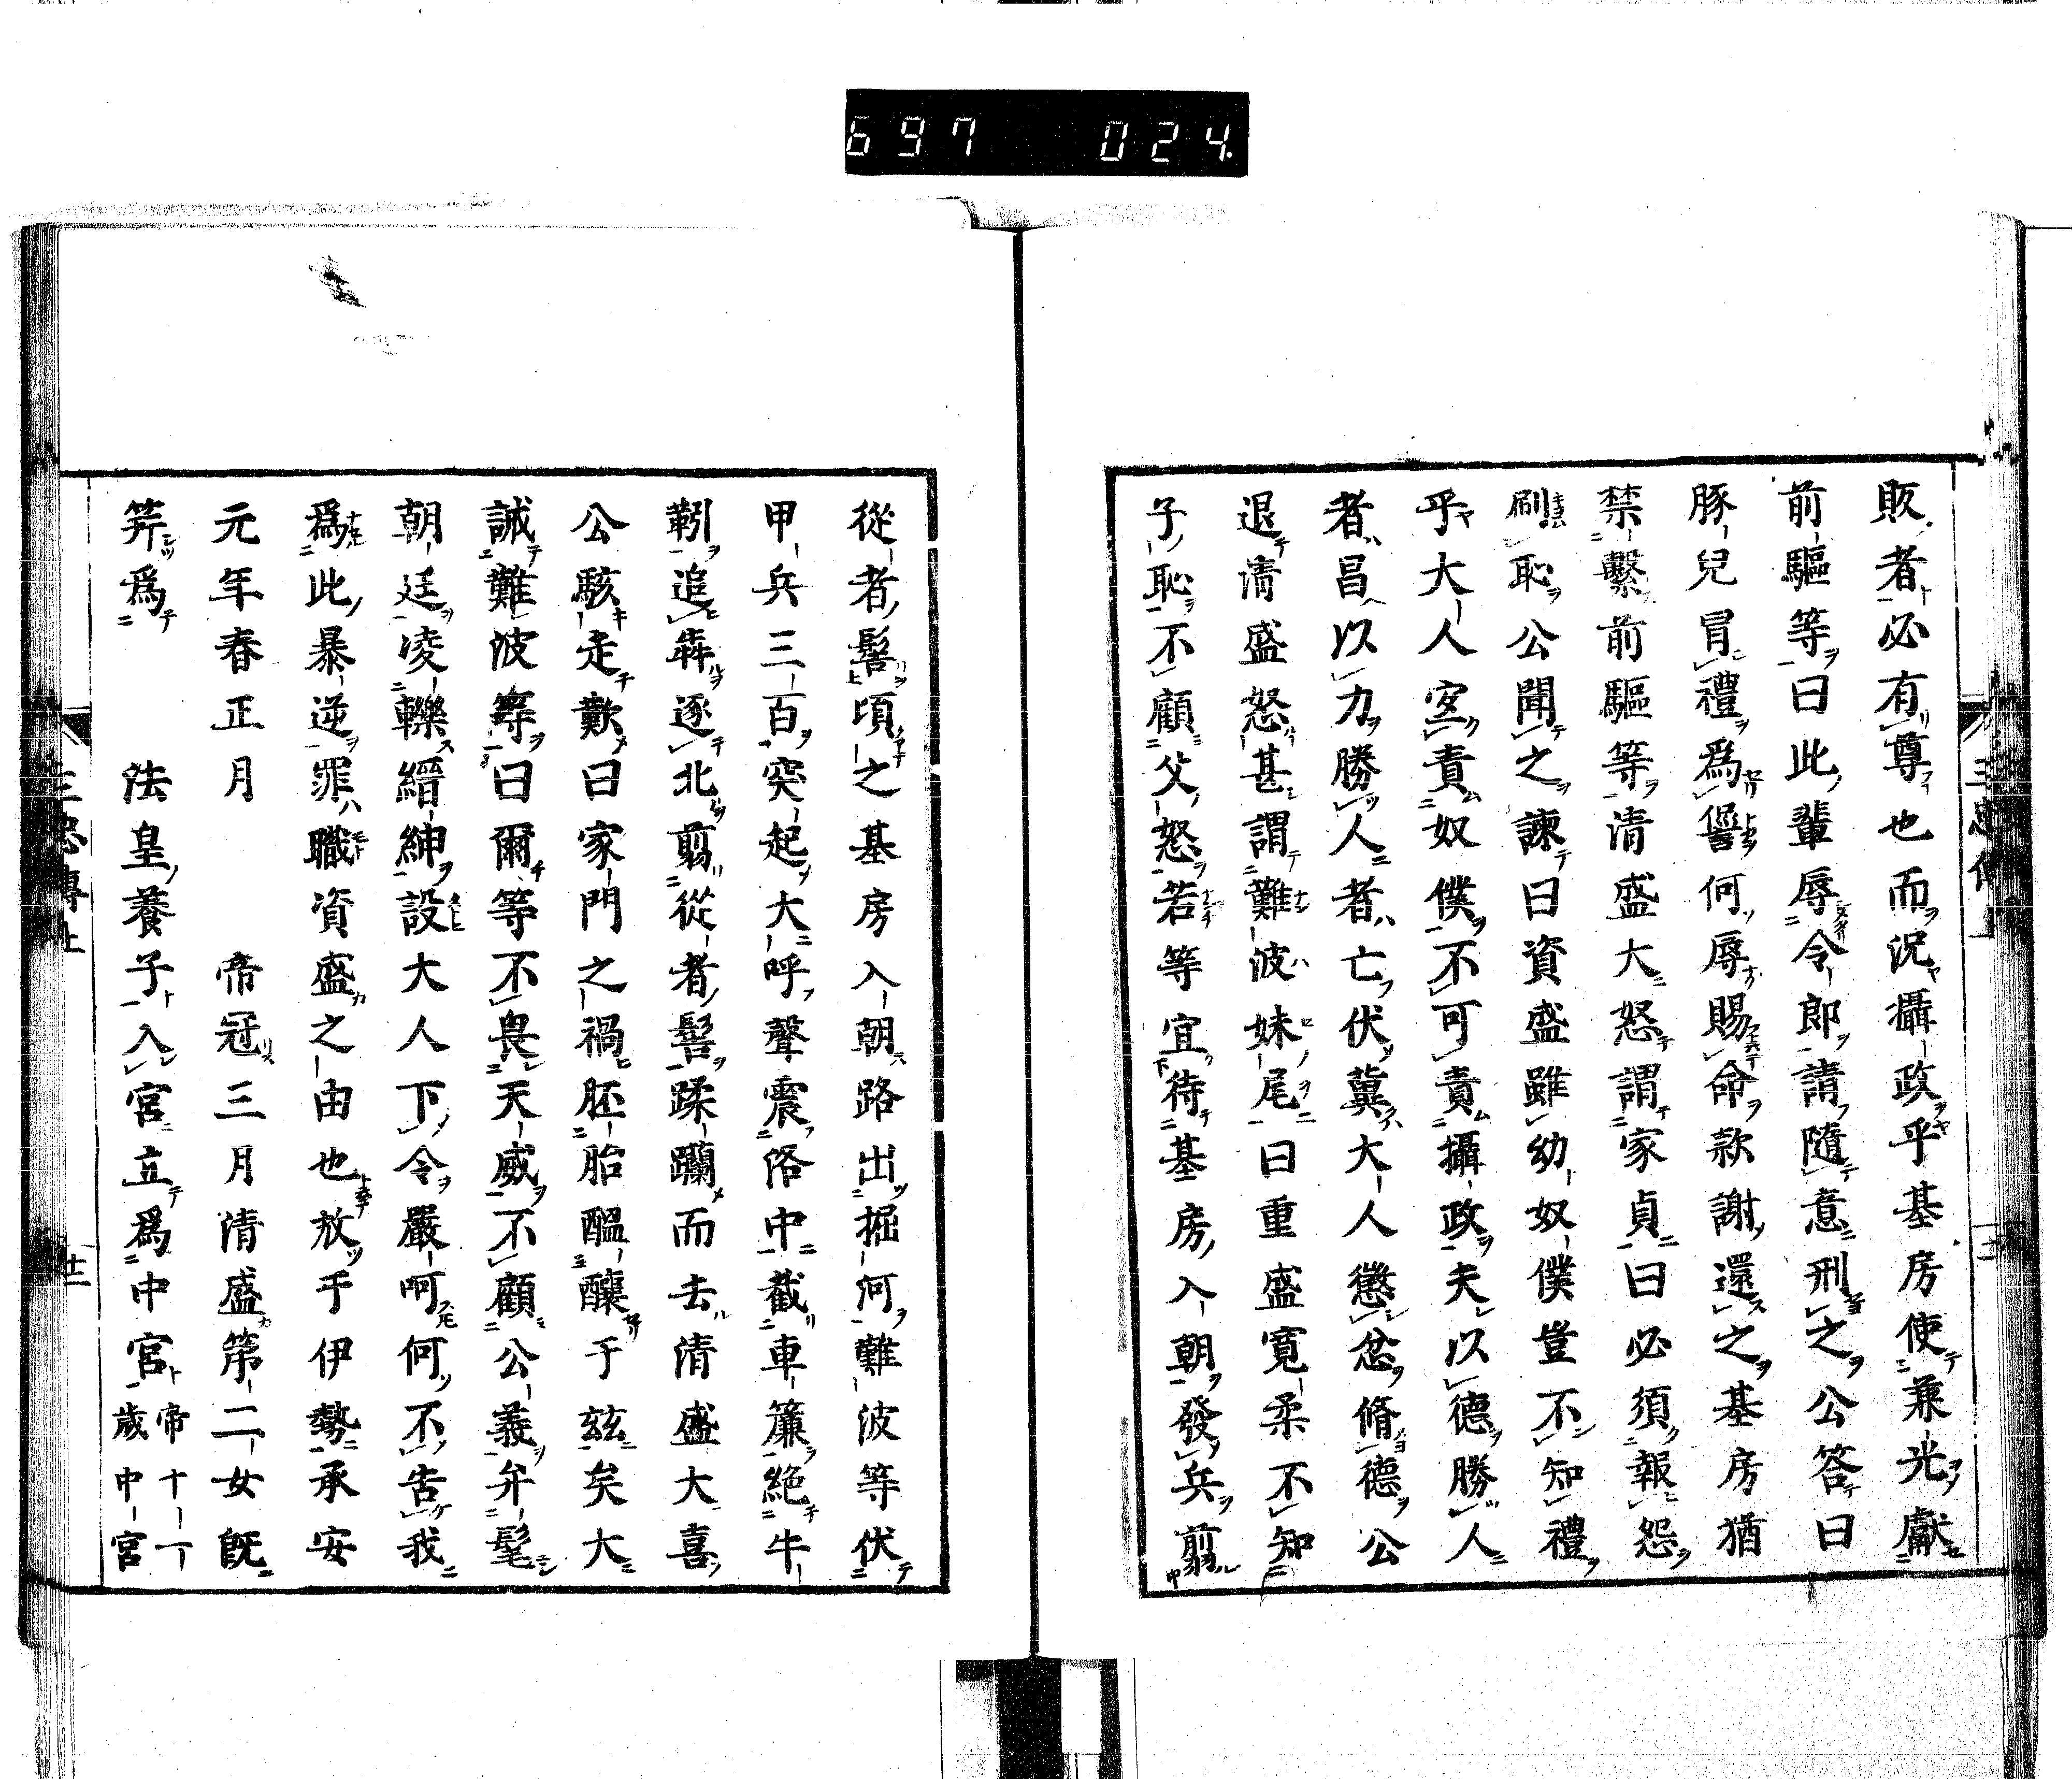 697 024
販者必有尊也而況攝政乎基房使兼光獻
前驅等曰此輩辱令郎請隨意刑之公答曰
豚兒冒禮爲釁何辱賜命款謝還之基房猶
禁繫前驅等清盛大怒謂家貞曰必須報怨
刷恥公聞之諫曰資盛雖幼奴僕豈不知禮
乎大人寛責奴僕不可責攝政夫以德勝人
者昌以力勝人者亡伏冀大人懲忿脩德公
退清盛怒甚謂難波妹尾曰重盛寛柔不知
子恥不顧父怒若等宜待基房入朝發兵剪
從者髻頃之基房入朝路出掘河難波等伏
甲兵三百突起大呼聲震洛中截車簾絶牛
靷追犇逐北剪從者髻蹂躙而去清盛大喜
公駭走歎曰家門之禍胚胎醞釀于玆矣大
誡難波等曰爾等不畏天威不顧公義弁髦
朝廷凌轢縉紳設大人下令嚴呵何不告我
爲此暴逆罪職資盛之由也放于伊勢承安
元年春正月　帝冠三月清盛第二女既
笄爲　法皇養子入宮立爲中宮帝十一歳中宮
三忠傳上
廿二